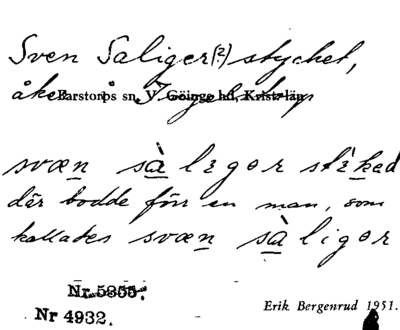 Sven Saliger(?) stycket,
åker i Ingelstorp
Barstorps sn, V. Göinge hd, Krist. län
svæn sàlıgər stìkəd
där bodde förr en man, som
kallades svæn sàligər
Nr. 5355.
Nr 4932.
Erik Bergenrud 1951.